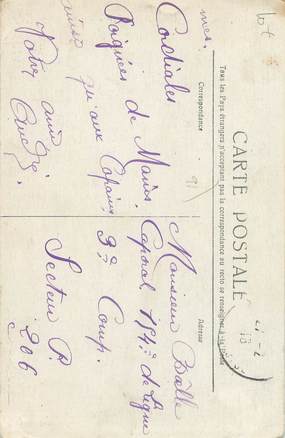 CARTE POSTALE
Tous les Pays étrangers n'acceptant pas la correspondance au recto se renseigner à la Poste
Correspondance
Adresse
mes.
Cordiales
Poignées de Mains
ainsi qu'aux Copains
Votre ami
Monsieur
Caporal 174e de Ligne
9e Comp.
Secteur P.
206